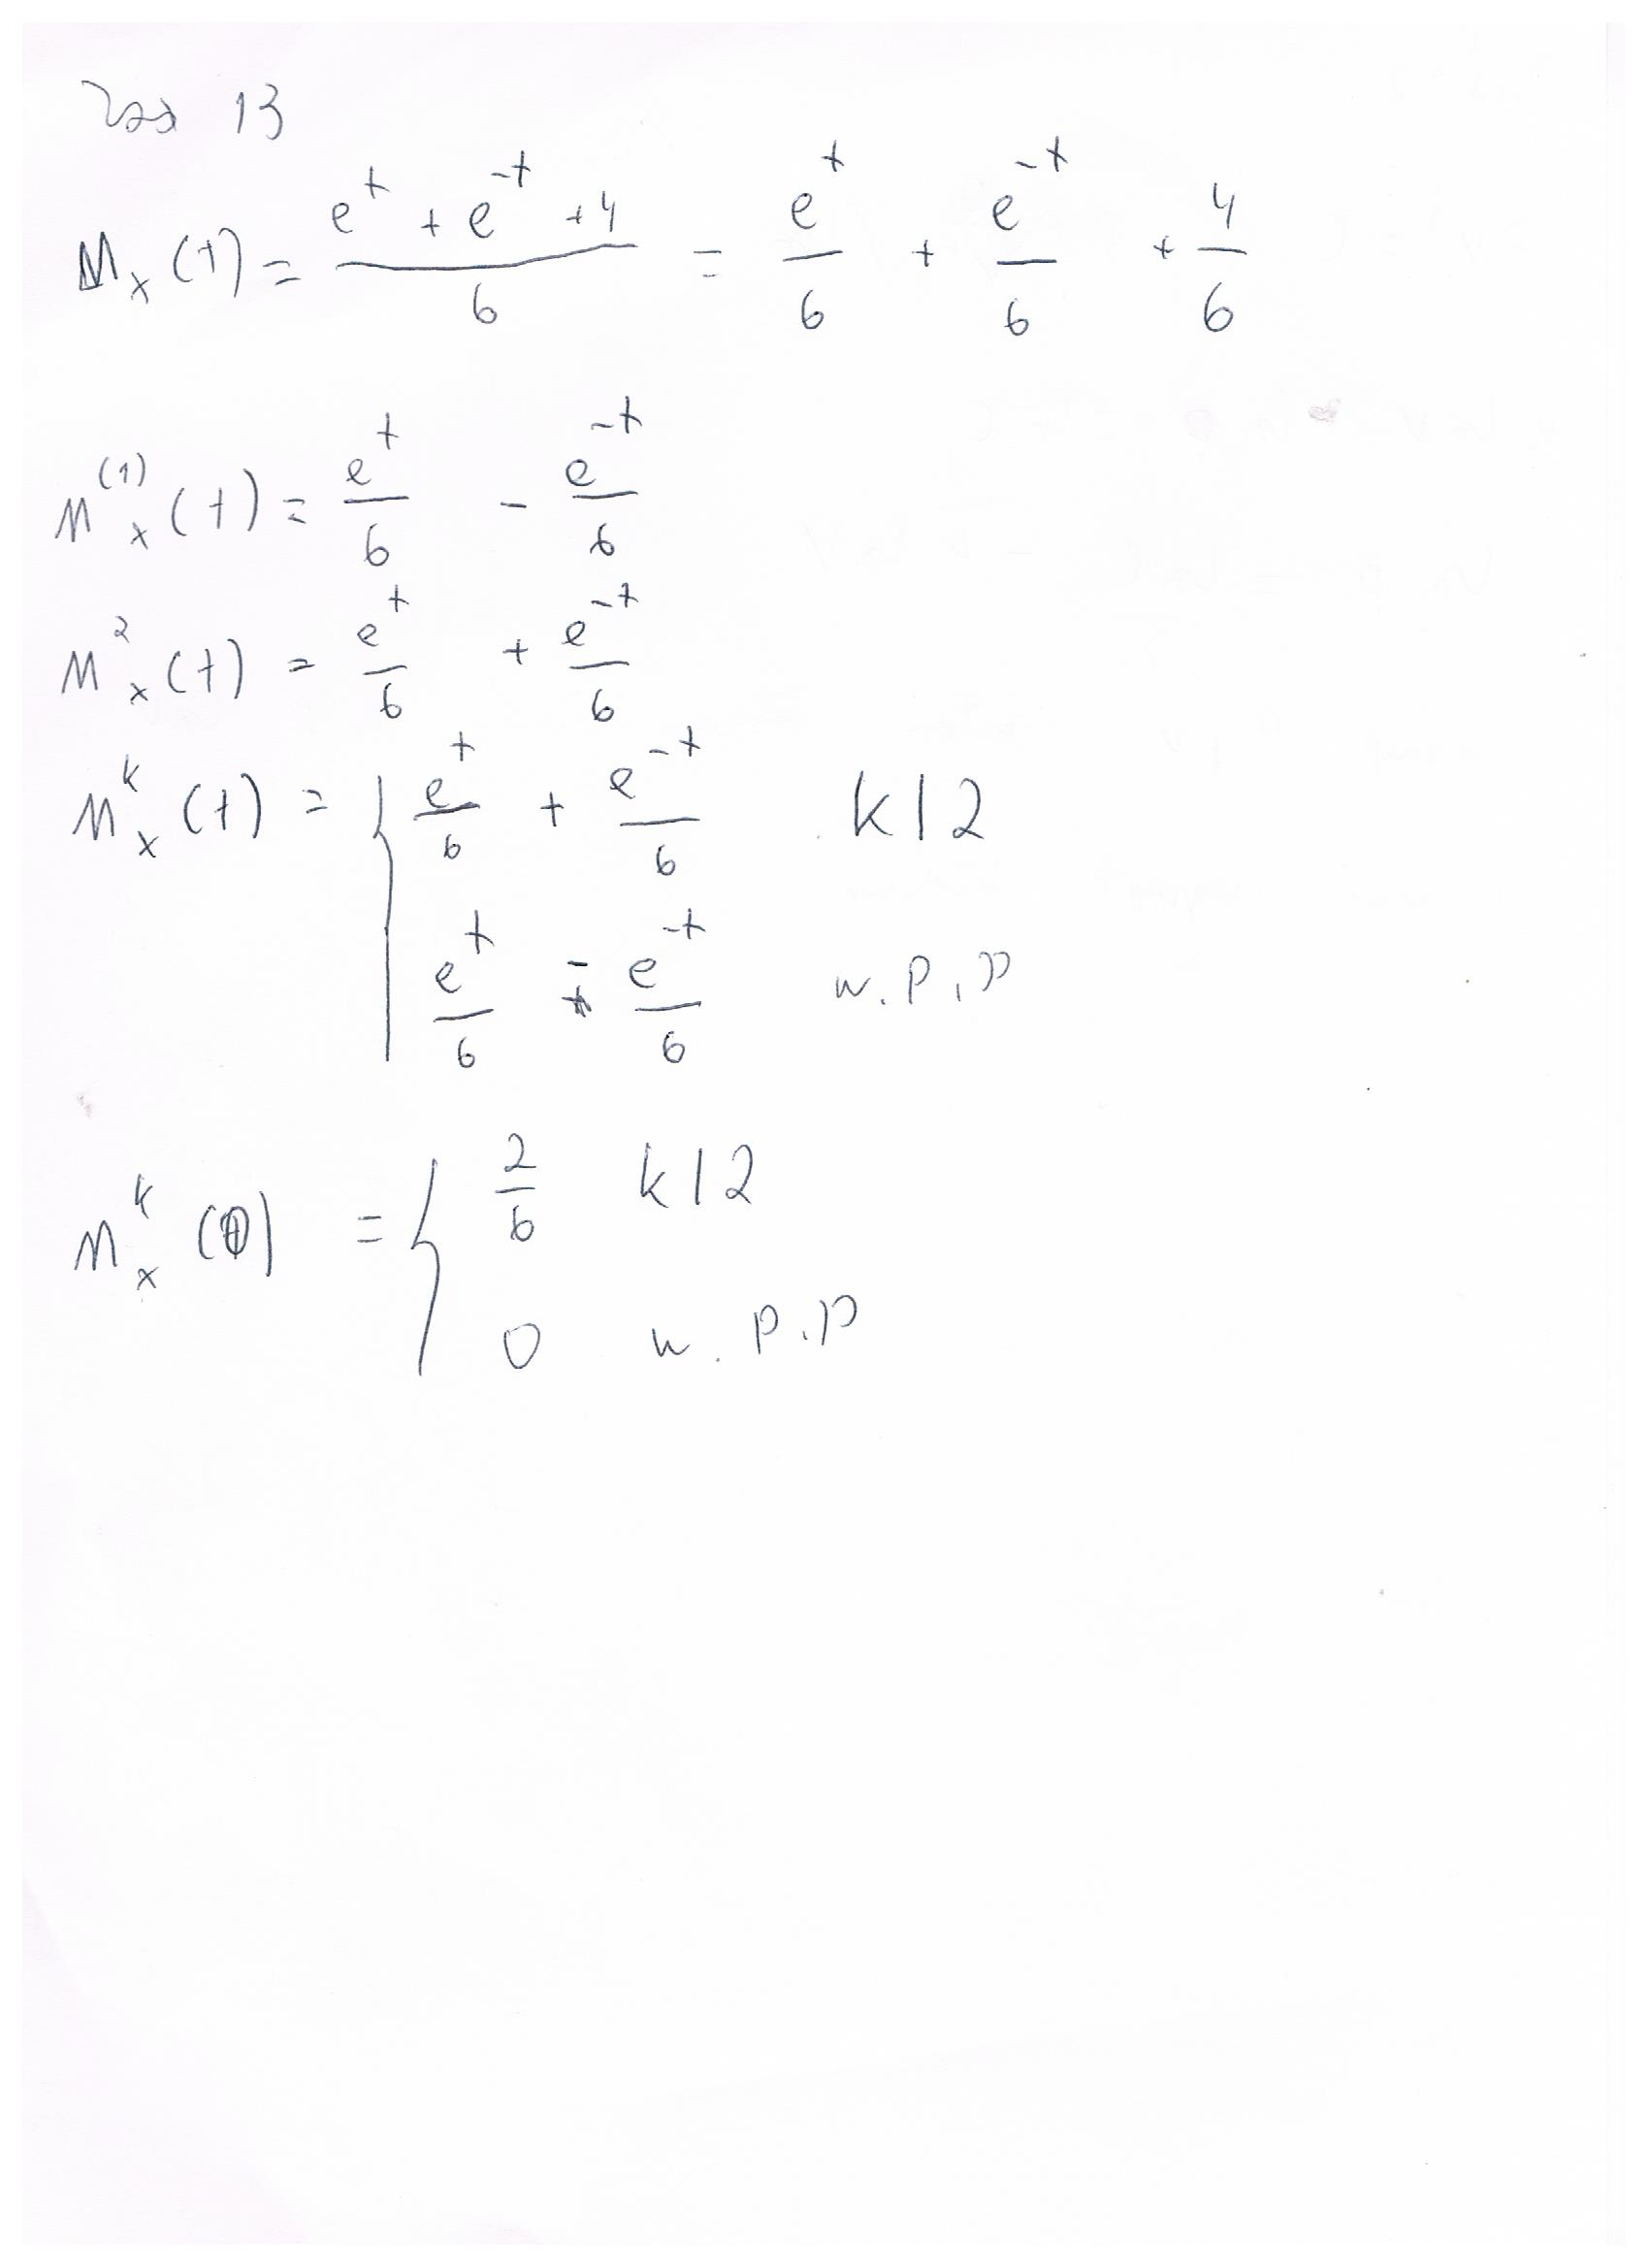 Zad 13
M_x(t) = (e^t + e^-t + 4)/6 = e^t/6 + e^-t/6 + 4/6
M^(1)_x(t) = e^t/6 - e^-t/6
M^2_x(t) = e^t/6 + e^-t/6
M^k_x(t) = { e^t/6 + e^-t/6 k|2
e^t/6 - e^-t/6 w.p.p
M^k_x(0) = { 2/6 k|2
0 w.p.p